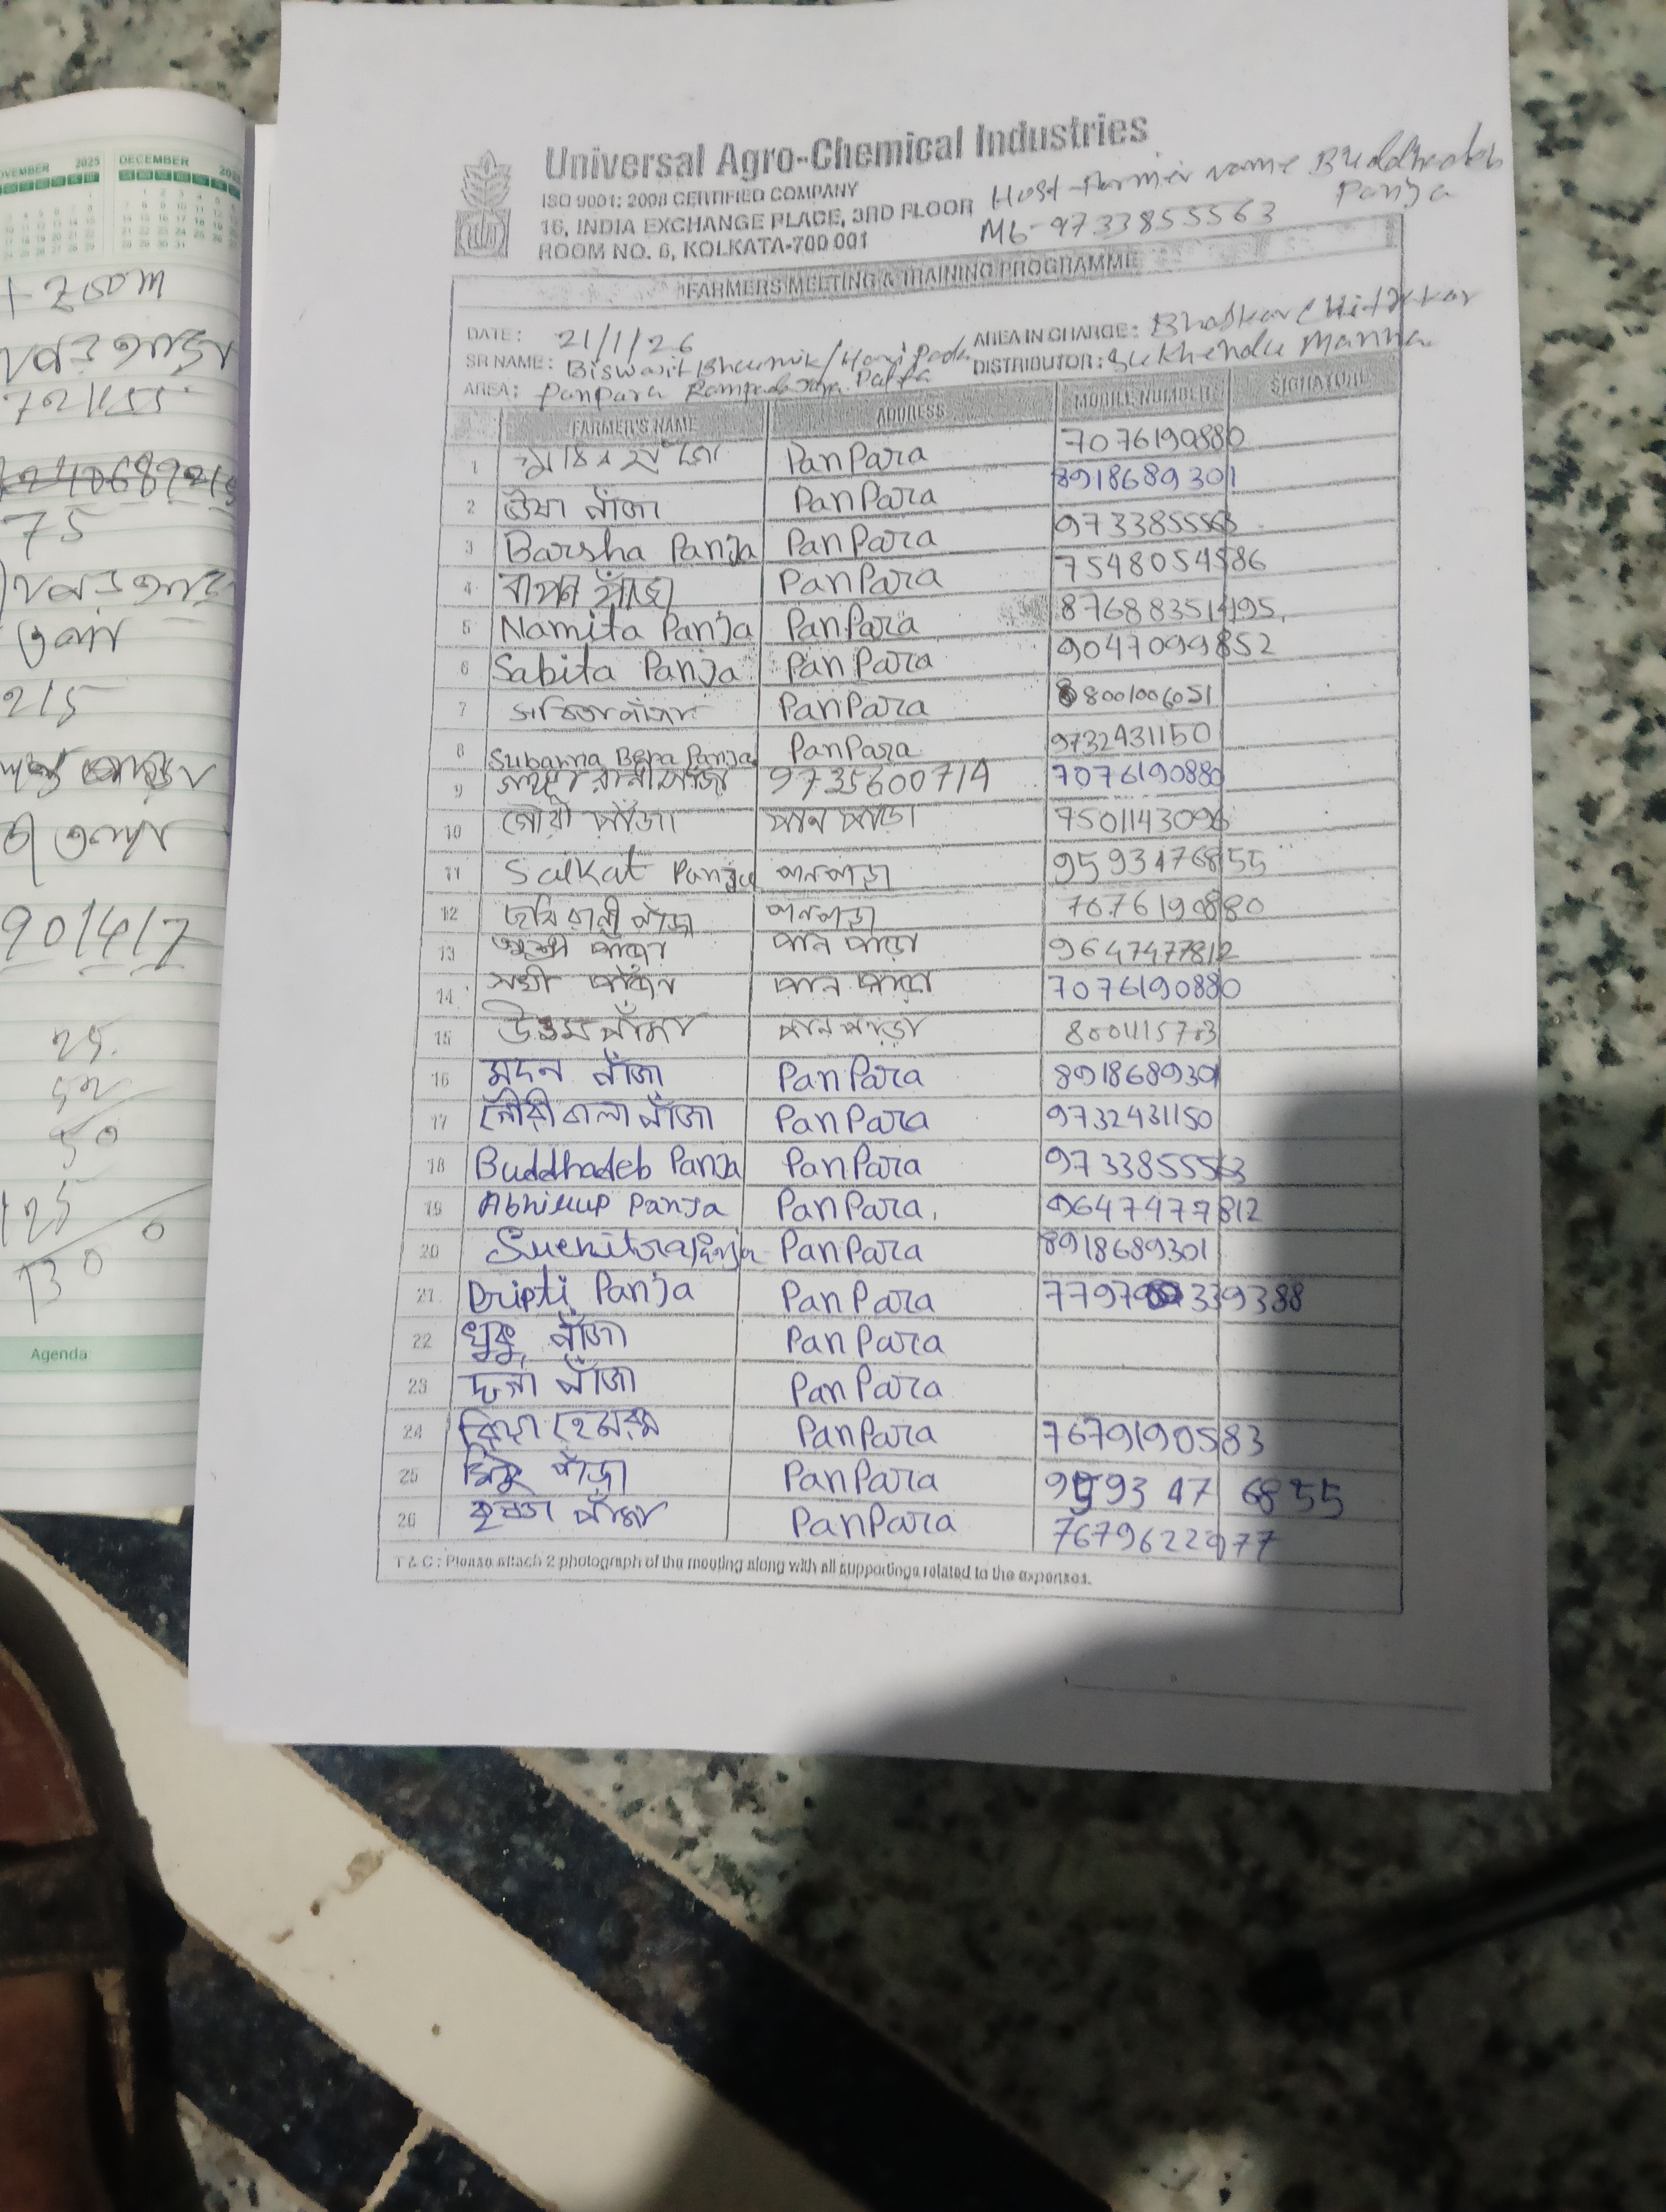 Universal Agro-Chemical Industries
ISO 9001: 2008 CERTIFIED COMPANY
16, INDIA EXCHANGE PLACE, 3RD FLOOR
ROOM NO. 6, KOLKATA-700 001
Host-Farmer name Buddhadeb
Panja
Mb-9733855563
FARMERS MEETING & TRAINING PROGRAMME
DATE: 21/1/26 AREA IN CHARGE: Bhaskar Chitrakar
SR NAME: Biswajit Bhaumik/Haripada DISTRIBUTOR: Sukhendu Manna
AREA: Panpara
FARMER'S NAME ADDRESS MOBILE NUMBER SIGNATURE
1 PanPara 7076190880
2 ঊষা পাঁজা PanPara 8918689301
3 Barsha Panja PanPara 9733855563
4 বাপন পাঁজা PanPara 7548054586
5 Namita Panja PanPara 87688351495
6 Sabita Panja PanPara 9047099852
7 PanPara 8001006051
8 Subarna Bera Panja PanPara 9732431150
9 9735600714 7076190880
10 গৌরী পাঁজা পান পাড়া 7501143096
11 Saikat Panja পানপাড়া 9593476855
12 পানপাড়া 7076190880
13 পাঁজা পান পাড়া 9647477812
14 পাঁজা পান পাড়া 7076190880
15 উত্তম পাঁজা পান পাড়া
16 মদন পাঁজা PanPara 8918689301
17 গৌরীবালা পাঁজা PanPara 9732431150
18 Buddhadeb Panja PanPara 9733855563
19 Abhirup Panja PanPara, 9647477812
20 Suchitra Panja PanPara 8918689301
21 Dripti Panja PanPara 7797 339388
22 খুকু পাঁজা PanPara
23 পাঁজা PanPara
24 PanPara 7679190583
25 PanPara 9593 47 6855
26 পাঁজা PanPara 7679622977
T & C : Please attach 2 photograph of the meeting along with all supportings related to the expenses.
VEMBER 2025 DECEMBER
+ 200m
75
215
90/4/7
25
50
125
130
Agenda